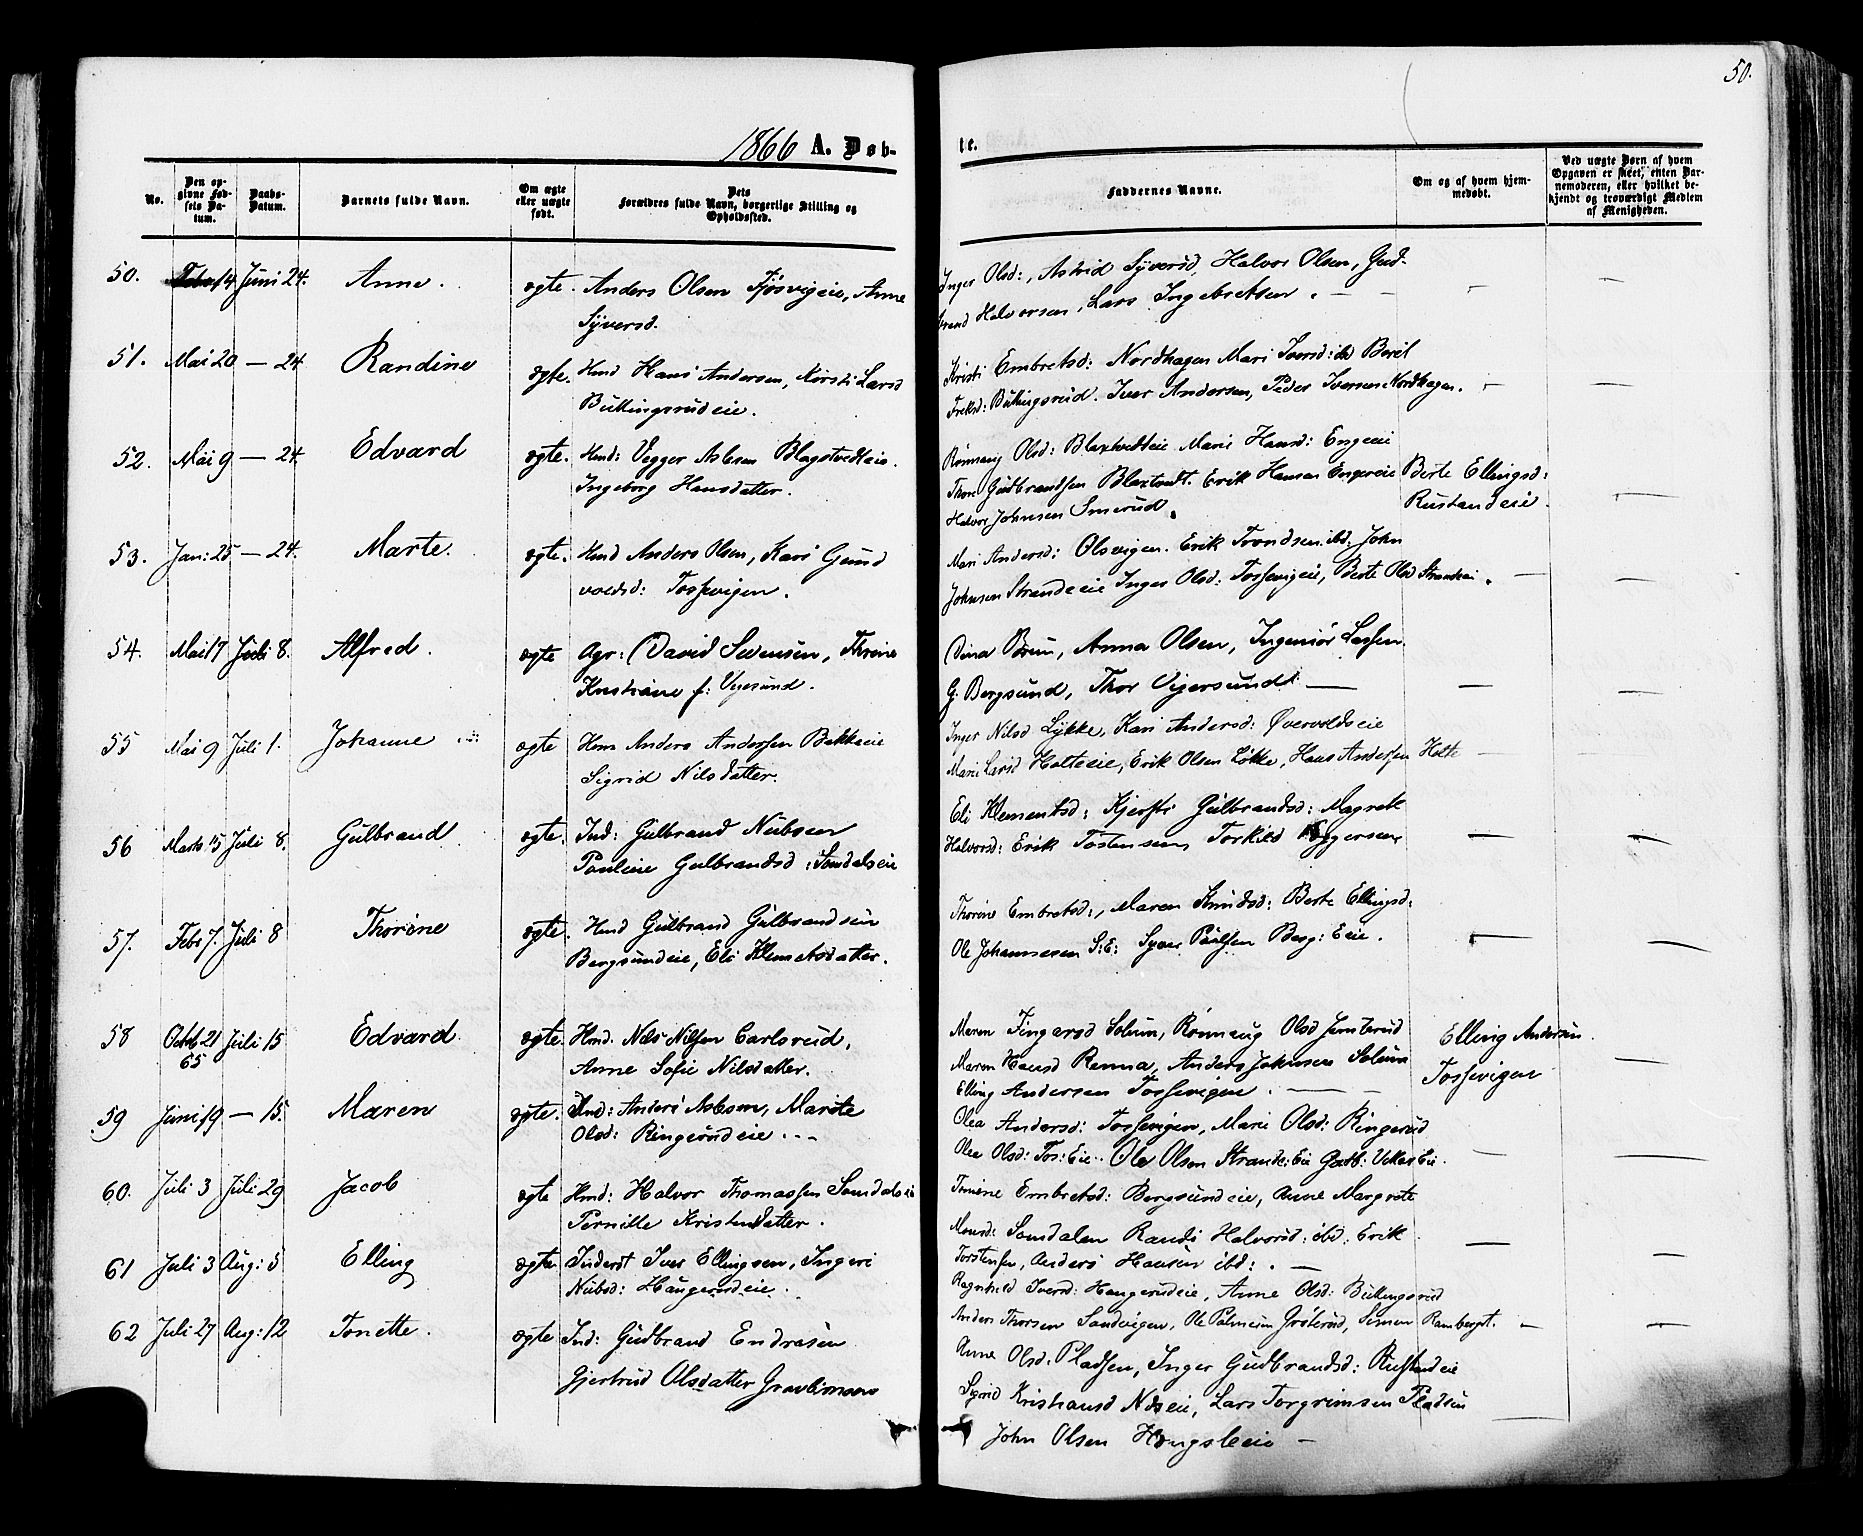 50.
1866 A. Døb-
te.
No.
Den op-
givne Fød-
sels Da-
tum.
Daabs-
Datum.
Barnets fulde Navn.
Om ægte
eller uægte
født.
Dets
Forældres fulde Navn, borgerlige Stilling og
Opholdssted.
Faddernes Navne.
Om og af hvem hjem-
medøbt.
Ved uægte Børn af hvem
Opgaven er skeet, enten Bar-
nemoderen, eller hvilket be-
kjendt og troværdigt Medlem
af Menigheden.
50. 14 Juni 24. Anne. ægte. Anders Olsen Fjøsvigeie, Anne
Syversd.
Inger Olsd:, Astrid Syversd, Halvor Olsen, Gud-
brand Halvorsen, Lars Ingebretsen. — —
51. Mai 20 — 24 Randine ægte. Hmd Hans Andersen, Kersti Larsd
Bullingsrudeie.
Kristi Embretsd: Nordhagen Mari Iversd: ibd Beril
Freksd: Bullingsrud. Iver Andersen, Peder Iversen Nordhagen.
52. Mai 9 — 24. Edvard ægte. Hmd: Vegger Aslesen Blagstvedteie.
Ingeborg Hansdatter.
Rønnaug Olsd: Blaxtvedteie Marie Hansd: Engereie
Thor Gudbrandsen Blaxtvedt. Erik Hansen Engereie
Halvor Johnsen Smerud.
Berte Ellingsd:
Rustandeie.
53. Jan: 25 — 24. Marte. ægte. Hmd Anders Olsen, Kari Gund
voldsd: Tossevigen.
Mari Andersd: Olsvigen. Erik Trondsen ibd. John
Johnsen Strandeeie Inger Olsd: Tossevigeie, Berte Olsd Strandeei.
54. Mai 17 Juli 8. Alfred. ægte Agr: David Svensen, Thrine
Kristiane f: Vigesund.
Dina Brun, Anna Olsen, Ingeniør Lassen
G. Bergsund, Thor Vigersund —
55 Mai 9 Juli 1. Johanne ægte Hmn Anders Andersen Bakkeeie
Sigrid Nilsdatter.
Inger Nilsd Lykke, Kari Andersd: Øvervoldseie
Marie Larsd Holteeie, Erik Olsen Løkke, Hans Andersen Holte
56 Marts 15 Juli 8. Gulbrand ægte. Ind: Gulbrand Nubsen
Pauline Gulbrandsd: Somdalseie
Eli Klementsd: Kjersti Gulbrandsd: Magrete
Halvorsd: Erik Tostensen, Torkild Veggersen
57. Febr 7. Juli 8 Thorine ægte. Hmd Gulbrand Gulbrandsen
Bergsundeie, Eli Klemetsdatter.
Thorine Embretsd:, Maren Knudsd: Berte Ellingsd:
Ole Johannesen S:E: Syver Paulsen Berg: Eie.
58 Octob 21
65 Juli 15 Edvard ægte. Hmd. Nils Nilsen Carlsrud,
Anne Sofie Nilsdatter.
Maren Fingarsd Solum, Rønnaug Olsd Jemterud
Maren Hansd Renna, Anders Johnsen Solum
Elling Andersen Tossevigen.
Elling Andersen
Tossevigen
59 Juni 19 — 15. Maren ægte. Ind: Anders Aslesen, Marite
Olsd: Ringerudeie.
Olea Andersd: Tossevigen, Marie Olsd: Ringerud
Olea Olsd: Tos: Eie. Ole Olsen Strande: Eie
60. Juli 3 Juli 29 Jacob ægte Hmd: Halvor Thomassen Somdalseie
Pernille Kristensdatter.
Embretsd: Bergsundeie, Anne Margrete
Monsd: Somdalen Randi Halvorsd: ibd: Erik
Torstensen, Anders Hansen ibd:. —
61 Juli 3 Aug: 5 Elling ægte Inderst Iver Ellingsen, Ingeri
Nubsd: Haugerudeie.
Ragnhild Iversd: Haugerudeie, Anne Olsd: Bullingsrud
Anders Thorsen Sandvigen, Ole Palmesen Grøterud, Simon Ramberget.
62 Juli 27 Aug: 12 Tonette. ægte Ind: Gudbrand Endresen
Gjertrud Olsdatter Gravlimoen
Anne Olsd: Pladsen, Inger Gudbrandsd: Rustandeie
Sigrid Kristiansd Næseie, Lars Torgrimsen Pladsen
John Olsen Haugsleeie —